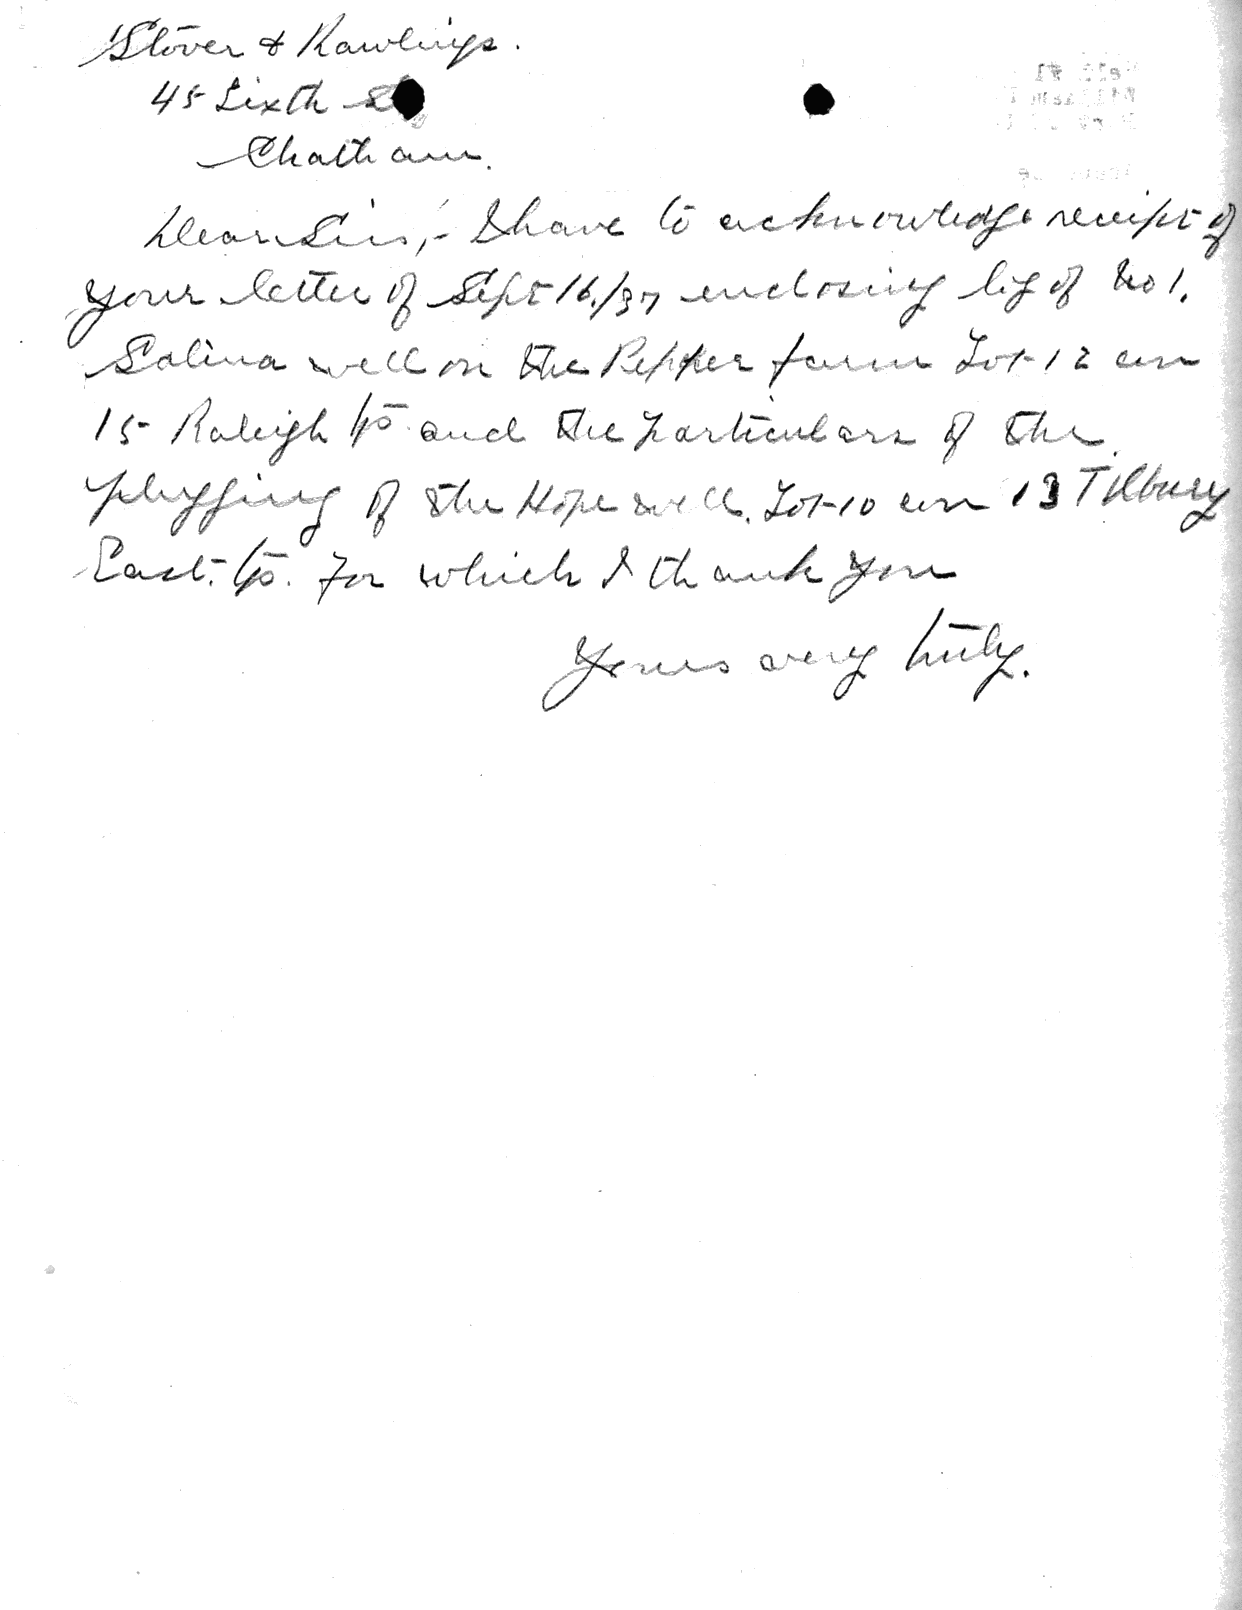 Stover & Rawlings.
45 Sixth St
Chatham.
Dear Sirs,- I have to acknowledge receipt of
your letter of Sept 16/37 enclosing log of No 1.
Salina well on the Pepper farm Lot 12 con
15 Raleigh Tp. and the particulars of the
plugging of the Hope well. Lot 10 con 13 Tilbury
East. Tp. for which I thank you
Yours very truly.